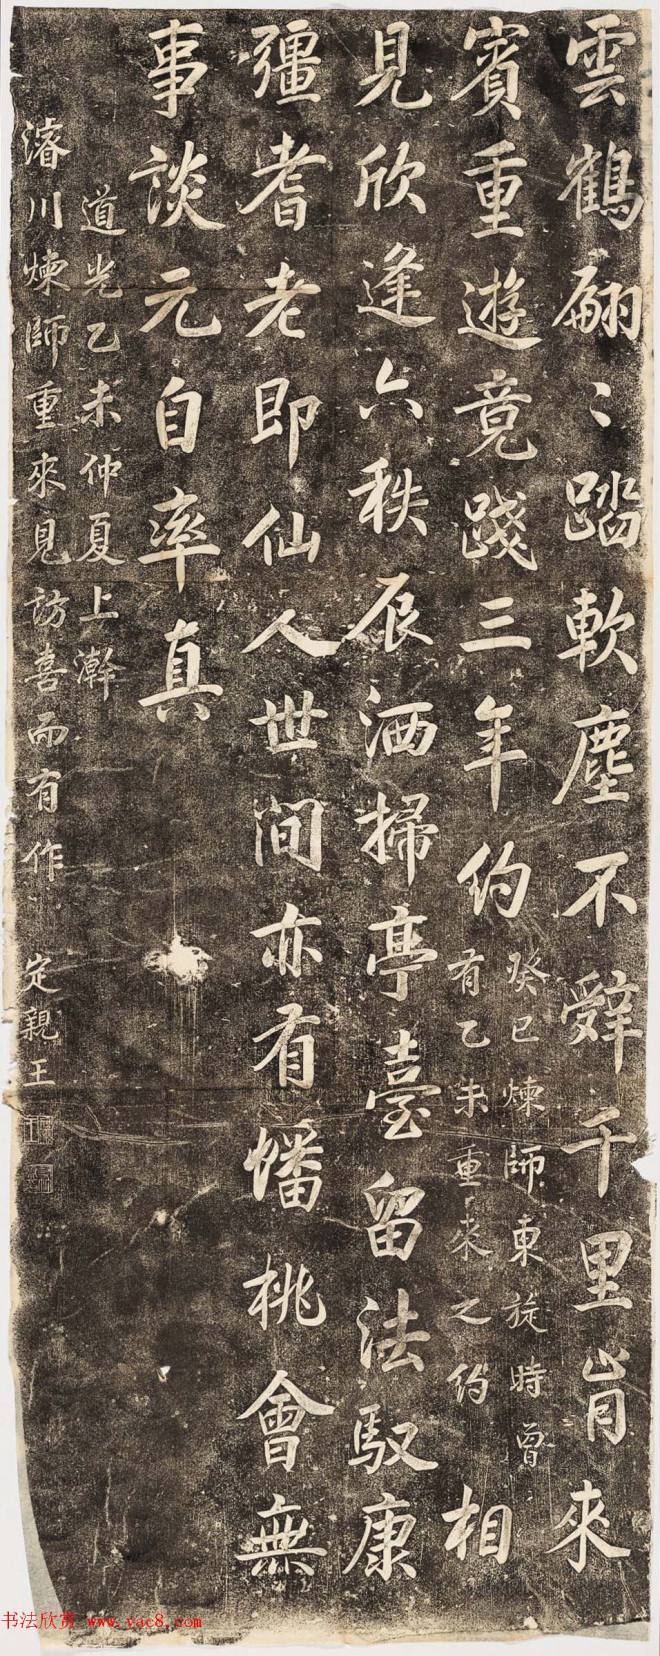 雲鶴翩〻踏軟塵不辭千里肯來
賓重遊竟踐三年約癸巳煉師東旋時曾有乙未重來之約相
見欣逢六秩辰洒掃亭臺留法馭康
彊耆老即仙人世間亦有蟠桃會無
事談元自率真
道光乙未仲夏上澣
濬川煉師重來見訪喜而有作
定親王
书法欣赏 www.yac8.com